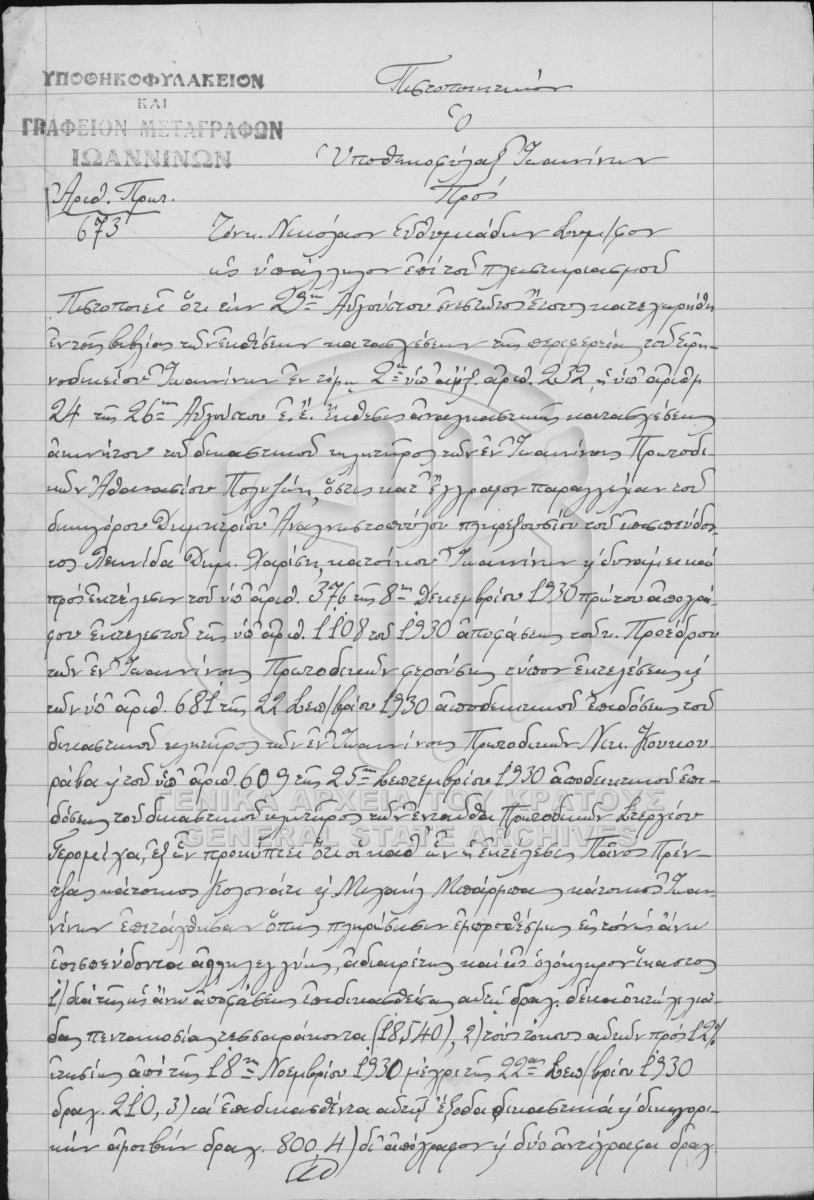 ΥΠΟΘΗΚΟΦΥΛΑΚΕΙΟΝ
ΚΑΙ
ΓΡΑΦΕΙΟΝ ΜΕΤΑΓΡΑΦΩΝ
ΙΩΑΝΝΙΝΩΝ
Πιστοποιητικόν
Ὁ
Ὑποθηκοφύλαξ Ἰωαννίνων
Πρός
Ἀριθ. Πρωτ.
673
Τόν κ. Νικόλαον Εὐθυμιάδην Συμ/φον
ὡς ὑπάλληλον ἐπί τοῦ πλειστηριασμοῦ
Πιστοποιεῖ ὅτι τήν 29ην Αὐγούστου ἐνεστῶτος ἔτους κατεχωρήθη
ἐν τοῖς βιβλίοις τῶν ἐκθέσεων κατασχέσεων τῆς περιφερείας τοῦ Εἰρη-
νοδικείου Ἰωαννίνων ἐν τόμῳ 2ῳ ὑπ' αὔξ. ἀριθ. 232, ἡ ὑπ' ἀριθμ
24 τῆς 26ης Αὐγούστου ἐ. ἔ. ἔκθεσις ἀναγκαστικῆς κατασχέσεως
ἀκινήτου τοῦ δικαστικοῦ κλητῆρος τῶν ἐν Ἰωαννίνοις Πρωτοδι-
κῶν Ἀθανασίου Πολυζώη, ὅστις κατ' ἔγγραφον παραγγελίαν τοῦ
δικηγόρου Δημητρίου Ἀναγνωστοπούλου πληρεξουσίου τοῦ ἐπισπεύδον-
τος Λεωνίδα Δημ. Χαρίση, κατοίκου Ἰωαννίνων ᾳ δυνάμει καί
πρός ἐκτέλεσιν τοῦ ὑπ' ἀριθ. 376 τῆς 8ης Δεκεμβρίου 1930 πρώτου ἀπογρά-
φου ἐκτελεστοῦ τῆς ὑπ' ἀριθ. 1108 τοῦ 1930 ἀποφάσεως τοῦ κ. Προέδρου
τῶν ἐν Ἰωαννίνοις Πρωτοδικῶν φερούσης τύπον ἐκτελέσεως ᾳ
τῶν ὑπ' ἀριθ. 681 τῆς 22 Σεπ/βρίου 1930 ἀποδεικτικοῦ ἐπιδόσεως τοῦ
δικαστικοῦ κλητῆρος τῶν ἐν Ἰωαννίνοις Πρωτοδικῶν Νικ. Κουκου-
ράβα ᾳ τοῦ ὑπ' ἀριθ. 609 τῆς 25ης Σεπτεμβρίου 1930 ἀποδεικτικοῦ ἐπι-
δόσεως τοῦ δικαστικοῦ κλητῆρος τῶν ἐνταῦθα Πρωτοδικῶν Στεργίου
Γερομίχα, ἐξ ὧν προκύπτει ὅτι οἱ καθ' ὧν ἡ ἐκτέλεσις Πάνος Πρέν-
τζας κάτοικος Κολονιάτι ᾳ Μιχαήλ Μπάρμπας κάτοικος Ἰωαν-
νίνων ἐπετάχθησαν ὅπως πληρώσωσιν ἐμπροθέσμως εἰς τόν ὡς ἄνω
ἐπισπεύδοντα ἀλληλεγγύως, ἀδιαιρέτως καί εἰς ὁλόκληρον ἕκαστος
1) διά τῆς ὡς ἄνω ἀποφάσεως ἐπιδικασθείσας αὐτῷ δραχ. δέκα ὀκτώ χιλιά-
δας πεντακοσίας τεσσαράκοντα (18540), 2) τούς τόκους αὐτῶν πρός 12%
ἐτησίως ἀπό τῆς 18ης Νοεμβρίου 1930 μέχρι τῆς 22ας Σεπ/βρίου 1930
δραχ. 210, 3) τά ἐπιδικασθέντα αὐτῷ ἔξοδα δικαστικά ᾳ δικηγορι-
κήν ἀμοιβήν δραχ. 800, 4) δι' ἀπόγραφον ᾳ δύο ἀντίγραφα δραχ.
ΓΕΝΙΚΑ ΑΡΧΕΙΑ ΤΟΥ ΚΡΑΤΟΥΣ
GENERAL STATE ARCHIVES